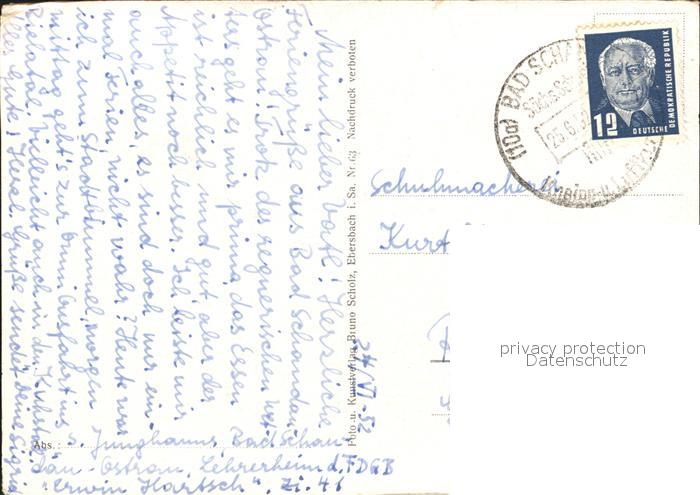 Mein lieber Vati! Herzliche
Feriengrüße aus Bad Schandau-
Ostrau. Trotz des regnerischen Wet-
ters geht es mir prima, das Essen
ist reichlich und gut, aber der
Appetit noch besser. Ich leiste mir
auch alles, es sind doch nur ein-
mal Ferien, nicht wahr? Heut war
ich zum Stadtbummel, morgen
mittag geht's zur Omnibusfahrt ins
Bielatal. Vielleicht auch in den Kuhstall.
Alles Gute! Herzl. Grüße sendet Deine Sigrid
Abs.: S. Junghanns, Bad Schan-
dau-Ostrau, Lehrerheim d. FDGB
"Erwin Hartsch", Zi. 41
Foto- u. Kunstverlag Bruno Scholz, Ebersbach i. Sa. Nr. 63 Nachdruck verboten
24. VI. 52
(10a) BAD SCHAN
25.6.5
12
DEUTSCHE
DEMOKRATISCHE REPUBLIK
Schuhmacherei
Kurt
privacy protection
Datenschutz